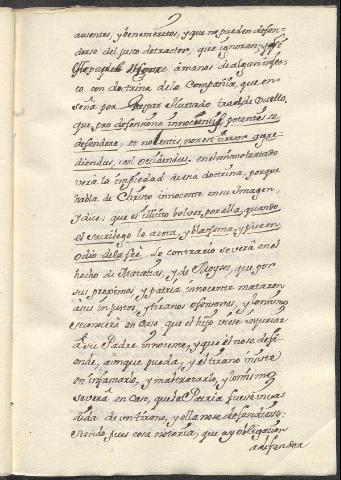 ausentes, y benemeritos, y que no pueden defen-
derse del justo detractor, que ignoran; y
a manos de algun infec-
to con doctrina de la Compañia, que en-
seña por Gaspar Hurtado, trat. de Duello,
que pro defensione innocentis potentis se
defendere, et nocentis non est tyranus aggre-
diendus, vel occidendus. en el mismo tratado
verà la impiedad de esta doctrina, porque
habla de Christo innocente en su Imagen,
y dice: que es illicito bolver por ella, quando
el sacrilego la azota, y blasfema, y pisa en
odio de la feè. Lo contrario se verà en el
hecho de Matatias, y de Moyses, que por
sus proximos, y patria innocente mataron
à sus injustos, y tiranos ofensores, y lo mismo
se conocerà en caso, que el hijo viese injuriar
à su Padre innocente, y que èl no se defi-
ende, aunque pueda, y el tirano insiste
en infamarlo, y maltratarlo, y lo mismo
se verà en caso, que la Patria fuese inva-
dida de un tirano, y ella no se defendiese:
Siendo pues cosa notoria, que ay obligacion
a defender